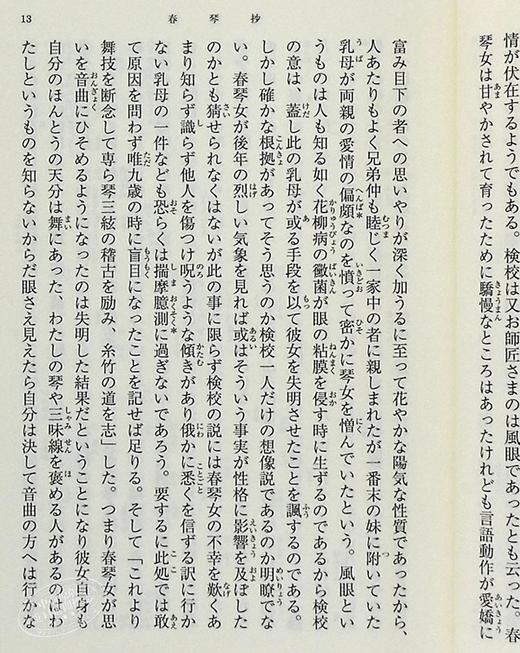 情が伏在するようでもある。検校は又お師匠さまのは風眼であったとも云った。春
琴女は甘やかされて育ったために驕慢なところはあったけれども言語動作が愛嬌に
13
春琴抄
富み目下の者への思いやりが深く加うるに至って花やかな陽気な性質であったから、
人あたりもよく兄弟仲も睦じく一家中の者に親しまれたが一番末の妹に附いていた
乳母が両親の愛情の偏頗なのを憤って密かに琴女を憎んでいたという。風眼とい
うものは人も知る如く花柳病の黴菌が眼の粘膜を侵す時に生ずるのであるから検校
の意は、蓋し此の乳母が或る手段を以て彼女を失明させたことを諷するのである。
しかし確かな根拠があってそう思うのか検校一人だけの想像説であるのか明瞭でな
い。春琴女が後年の烈しい気象を見れば或はそういう事実が性格に影響を及ぼした
のかとも猜せられなくはないが此の事に限らず検校の説には春琴女の不幸を歎くあ
まり知らず識らず他人を傷つけ呪うような傾きがあり俄かに悉くを信ずる訳に行か
ない乳母の一件なども恐らくは揣摩臆測に過ぎないであろう。要するに此処では敢
て原因を問わず唯九歳の時に盲目になったことを記せば足りる。そして「これより
舞技を断念して専ら琴三絃の稽古を励み、糸竹の道を志」した。つまり春琴女が思
いを音曲にひそめるようになったのは失明した結果だということになり彼女自身も
自分のほんとうの天分は舞にあった、わたしの琴や三味線を褒める人があるのはわ
たしというものを知らないからだ眼さえ見えたら自分は決して音曲の方へは行かな